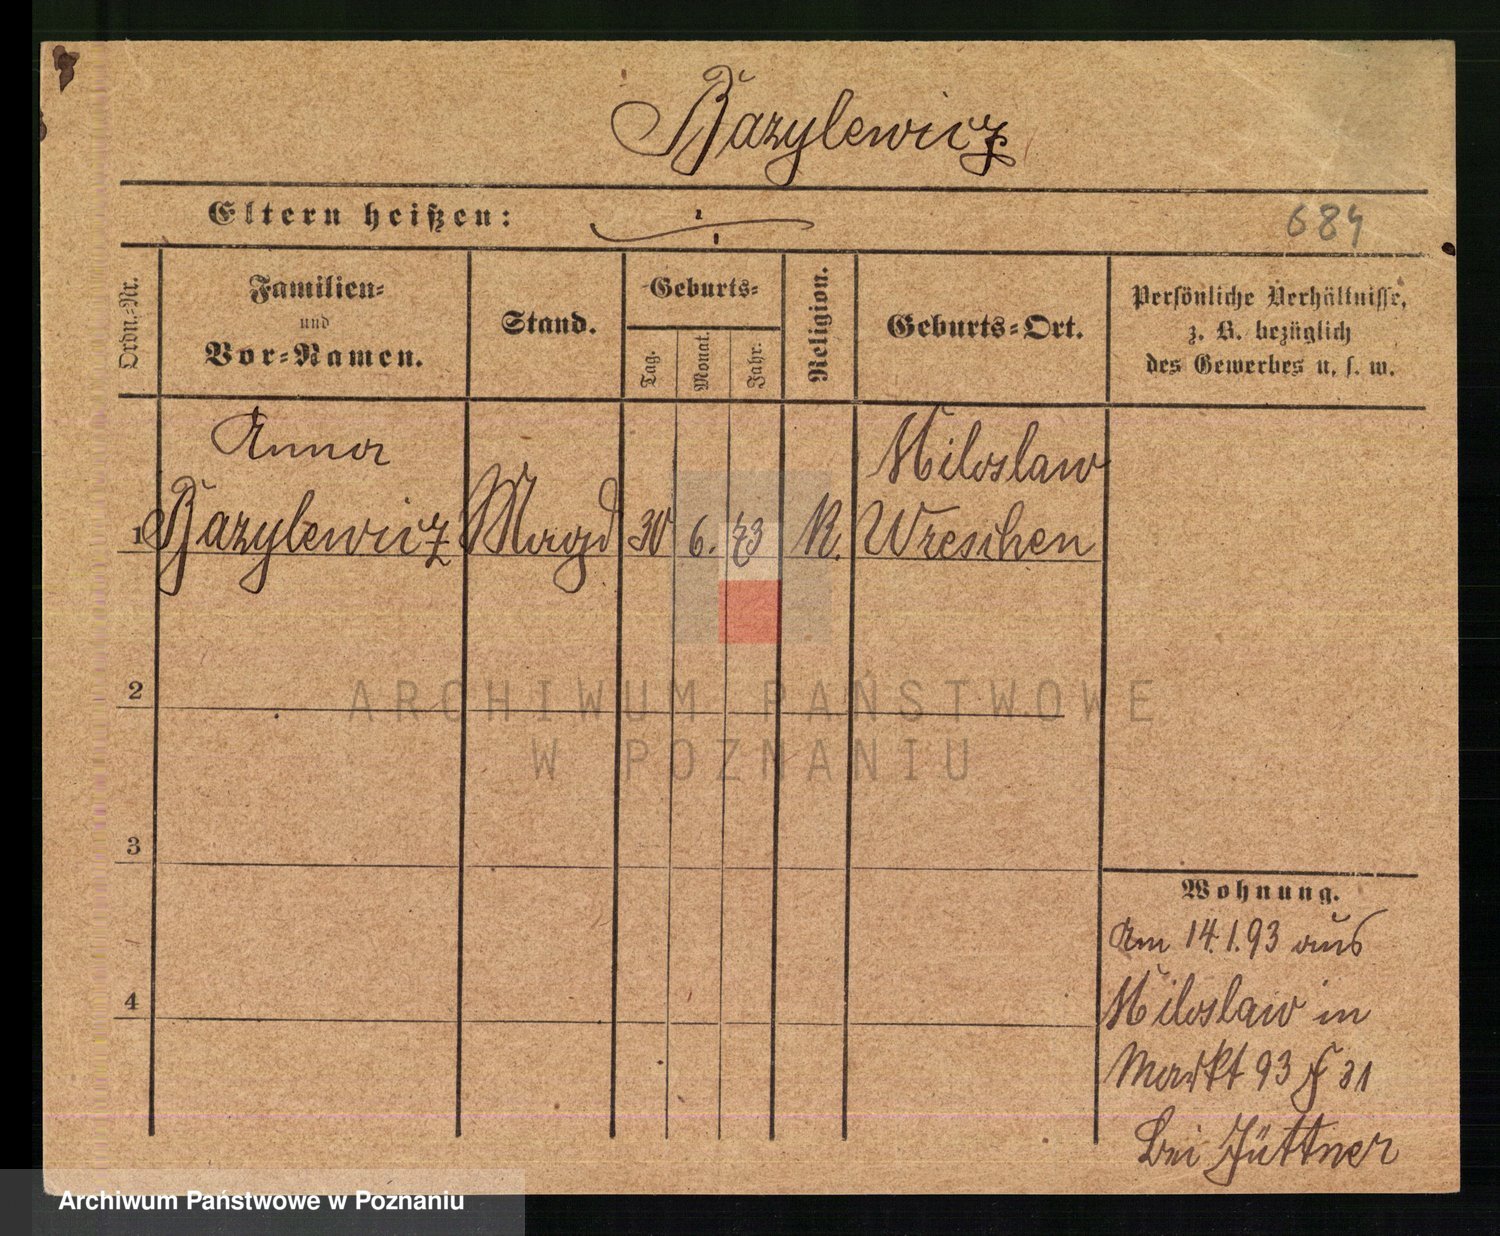 Bazylewicz
Eltern heißen:
684
Ordn.-Nr.
Familien-
und
Vor-Namen.
Stand.
Geburts-
Tag.
Monat.
Jahr.
Religion.
Geburts-Ort.
Persönliche Verhältnisse,
z. B. bezüglich
des Gewerbes u. s. w.
Anna
Miloslaw
1 Bazylewicz Magd 30 6. 73 K. Wreschen
2
ARCHIWUM PAŃSTWOWE
W POZNANIU
3
Wohnung.
Am 14.1.93 aus
Miloslaw in
4
Markt 93 F 31
bei Jüttner
Archiwum Państwowe w Poznaniu